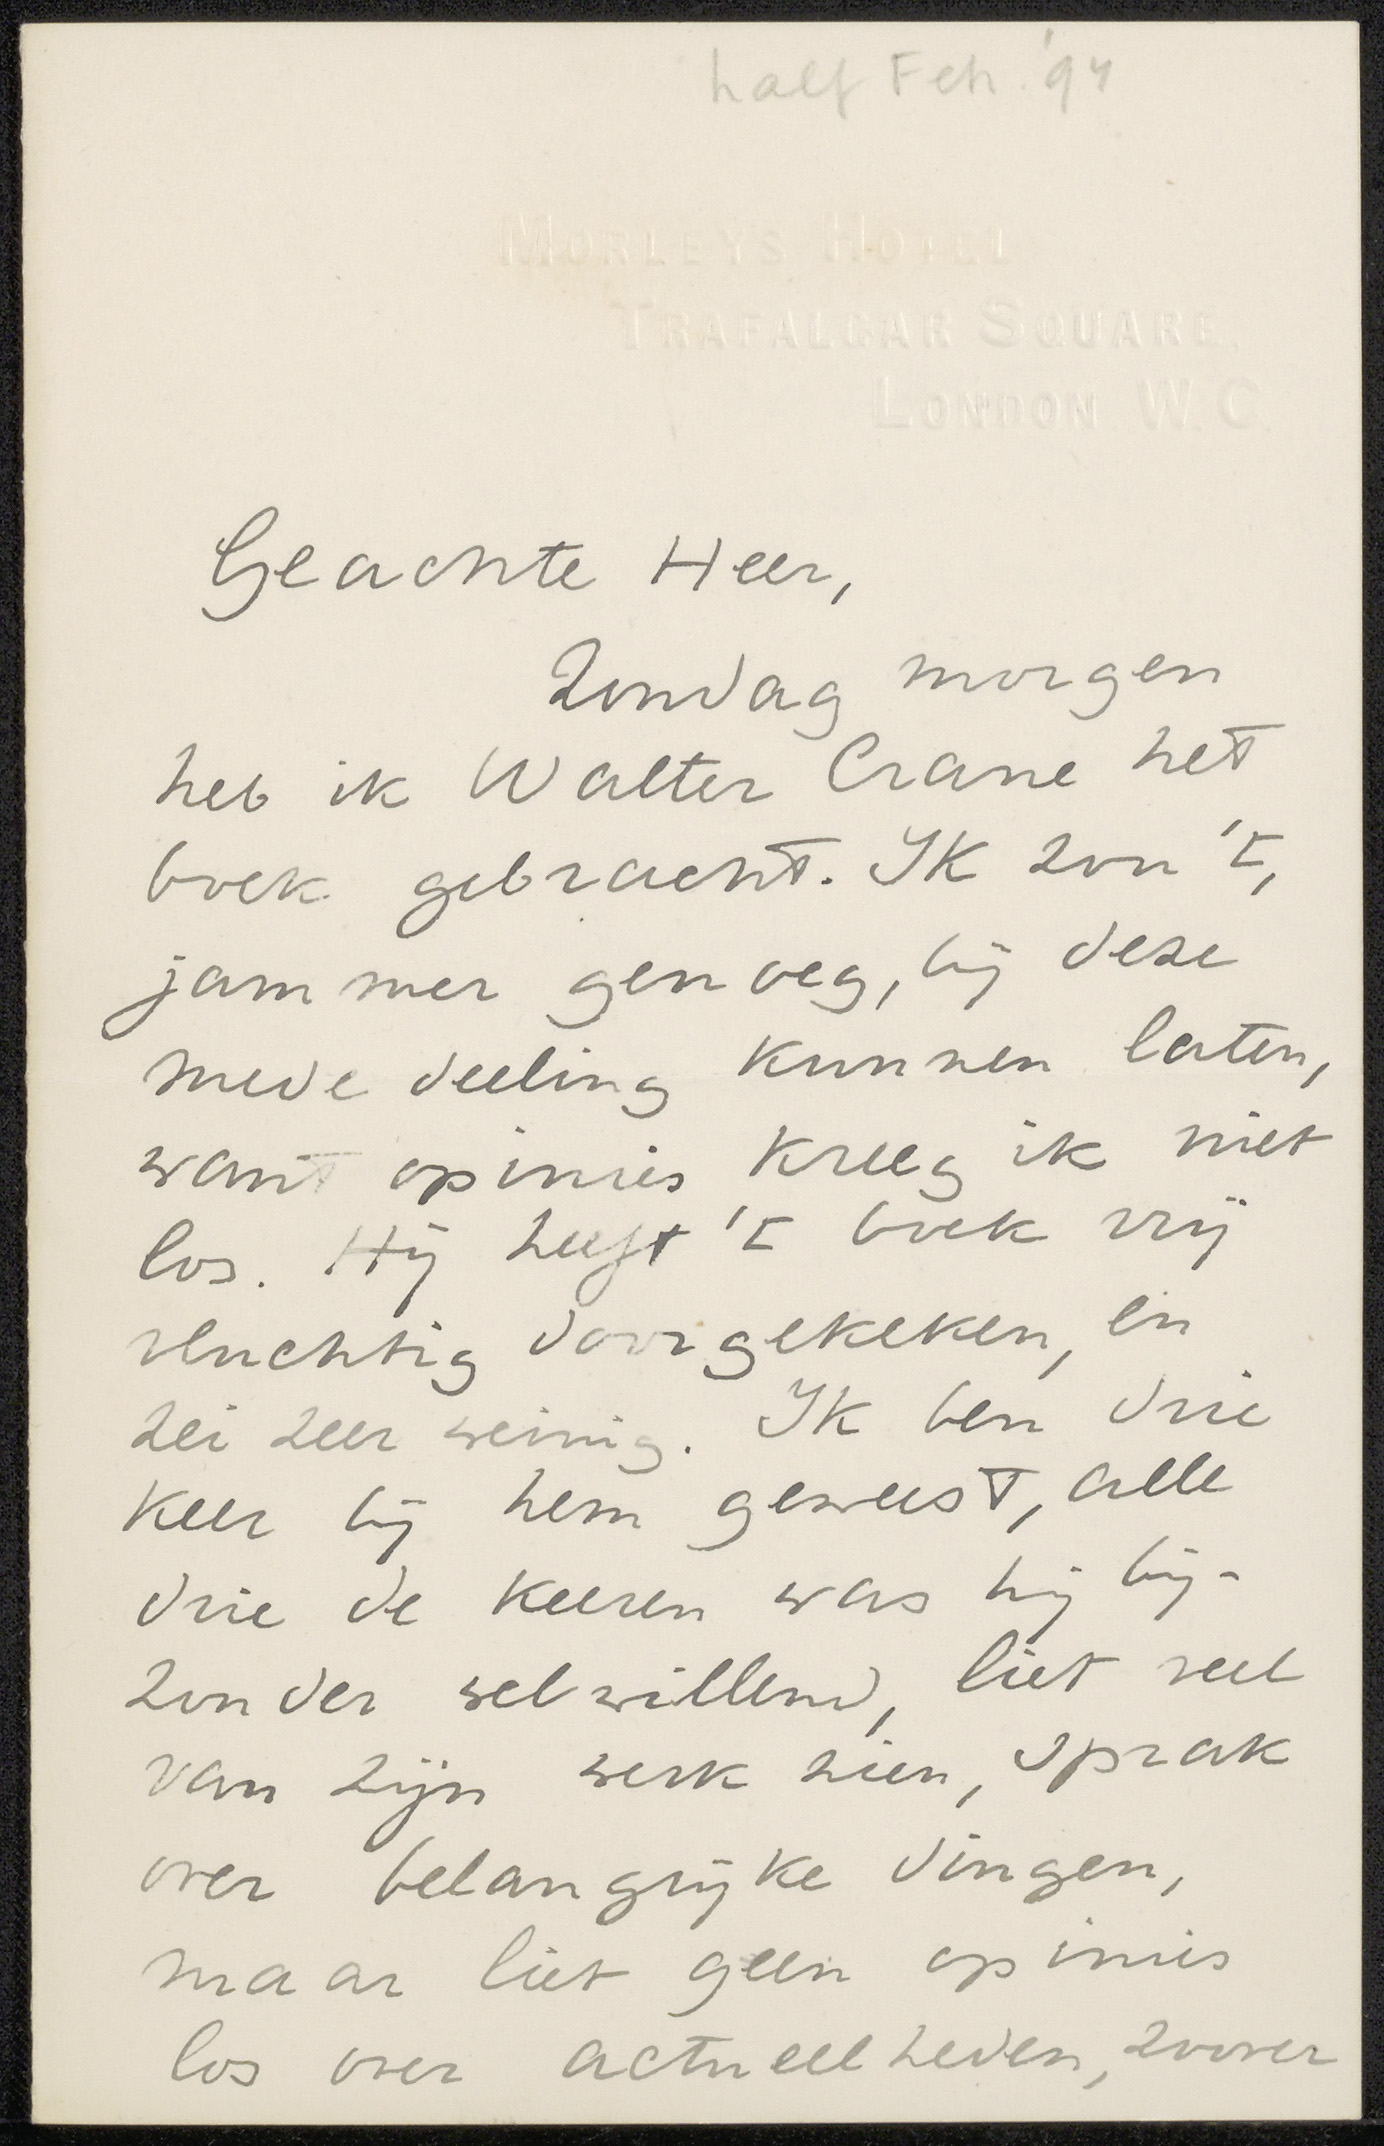 half Feb. '94
MORLEYS HOTEL
TRAFALGAR SQUARE,
LONDON W.C.
Geachte Heer,
Zondag morgen
heb ik Walter Crane het
boek gebracht. Ik zou 't,
jammer genoeg, bij deze
mededeeling kunnen laten,
want opinies kreeg ik niet
los. Hij heeft 't boek vrij
vluchtig doorgekeken, en
zei zeer weinig. Ik ben drie
keer bij hem geweest, alle
drie de keeren was hij bij-
zonder welwillend, liet veel
van zijn werk zien, sprak
over belangrijke dingen,
maar liet geen opinies
los over actueelheden, zoover